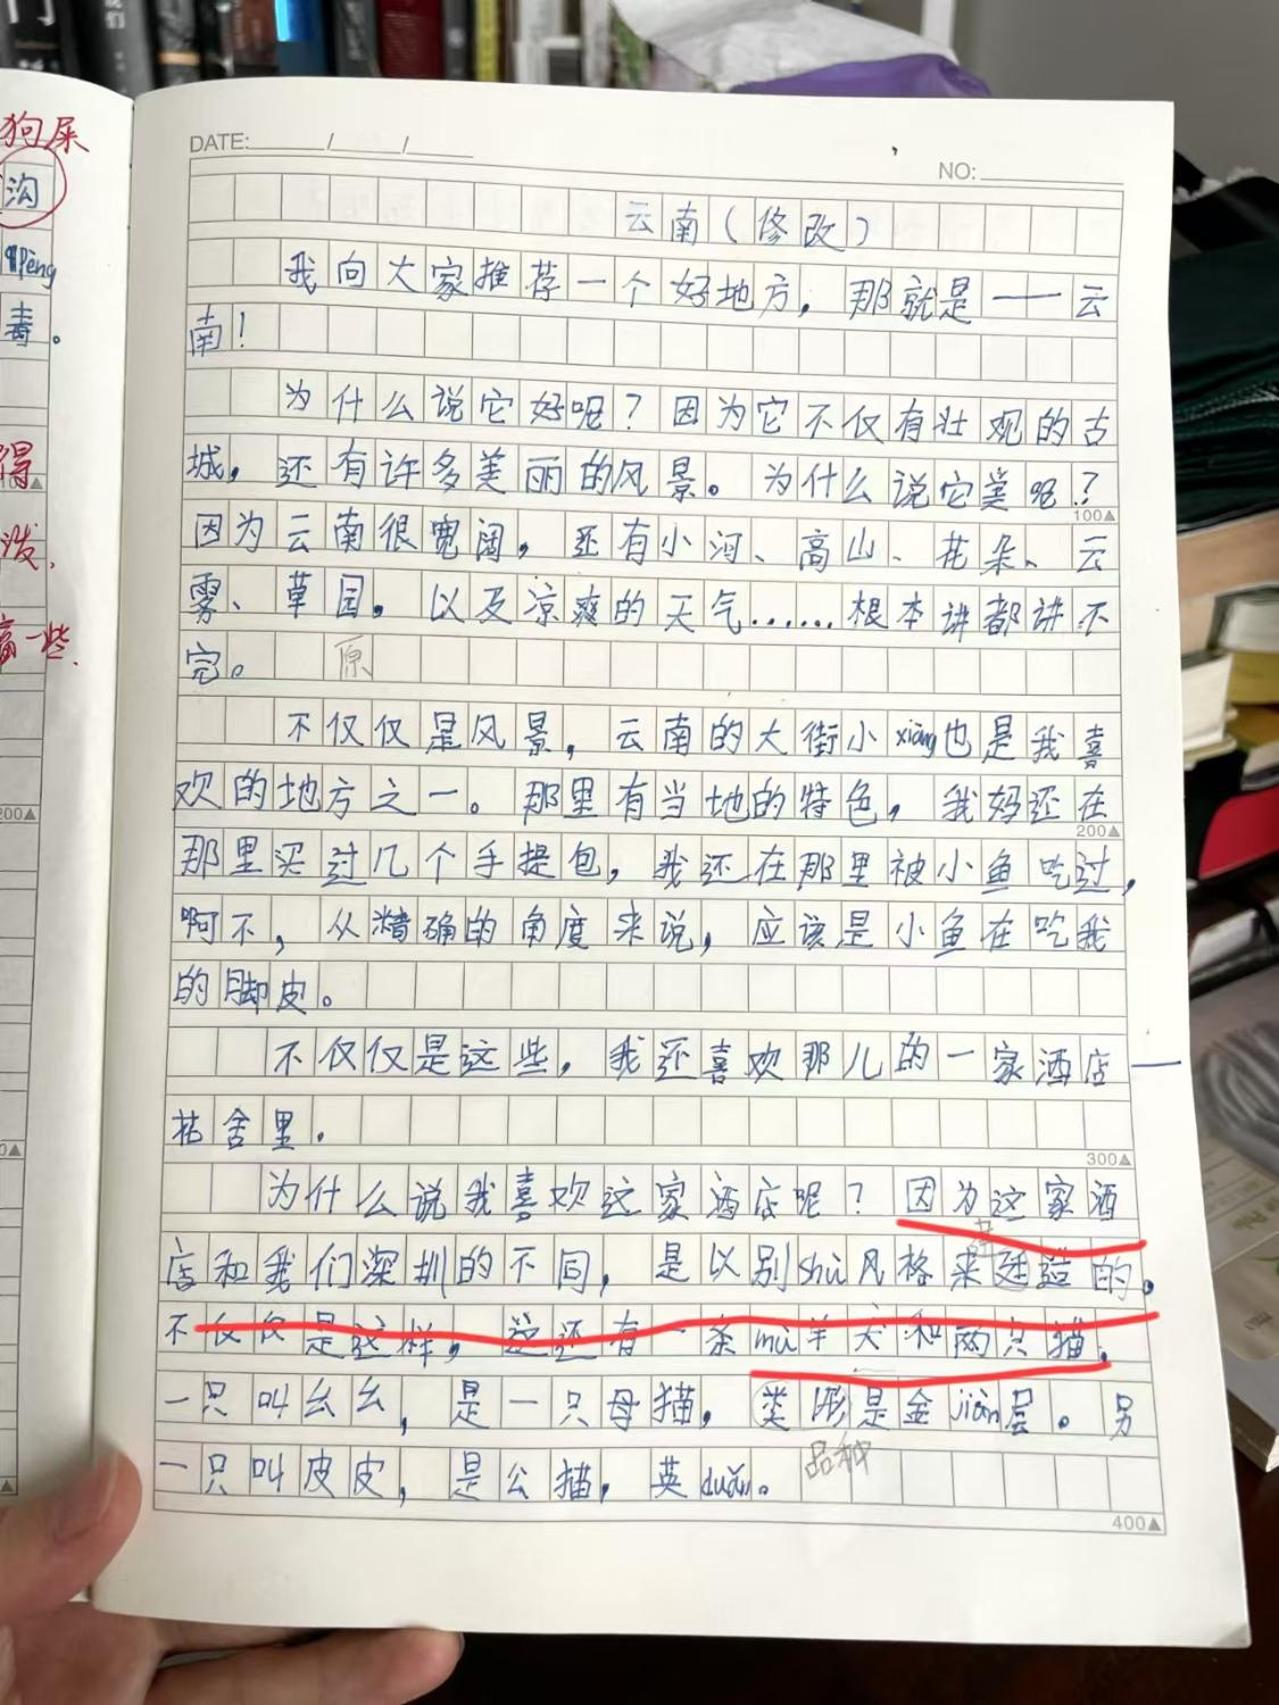 狗屎
沟
pèng
毒。
得
泼,
富一些.
200▲
DATE: / /
NO:
云南(修改)
我向大家推荐一个好地方,那就是——云
南!
为什么说它好呢?因为它不仅有壮观的古
城,还有许多美丽的风景。为什么说它美呢?
100▲
因为云南很宽阔,还有小河、高山、花朵、云
雾、草园,以及凉爽的天气......根本讲都讲不
完。 原
不仅仅是风景,云南的大街小xiàng也是我喜
欢的地方之一。那里有当地的特色,我妈还在
200▲
那里买过几个手提包,我还在那里被小鱼吃过,
啊不,从精确的角度来说,应该是小鱼在吃我
的脚皮。
不仅仅是这些,我还喜欢那儿的一家酒店——
拈舍里.
300▲
为什么说我喜欢这家酒店呢?因为这家酒
建
店和我们深圳的不同,是以别shù风格来廷造的.
不仅仅是这样,还有一条mù羊犬和两只猫.
一只叫幺幺,是一只母猫,类形是金jiàn层。另
品种
一只叫皮皮,是公猫,英duǎn。
400▲